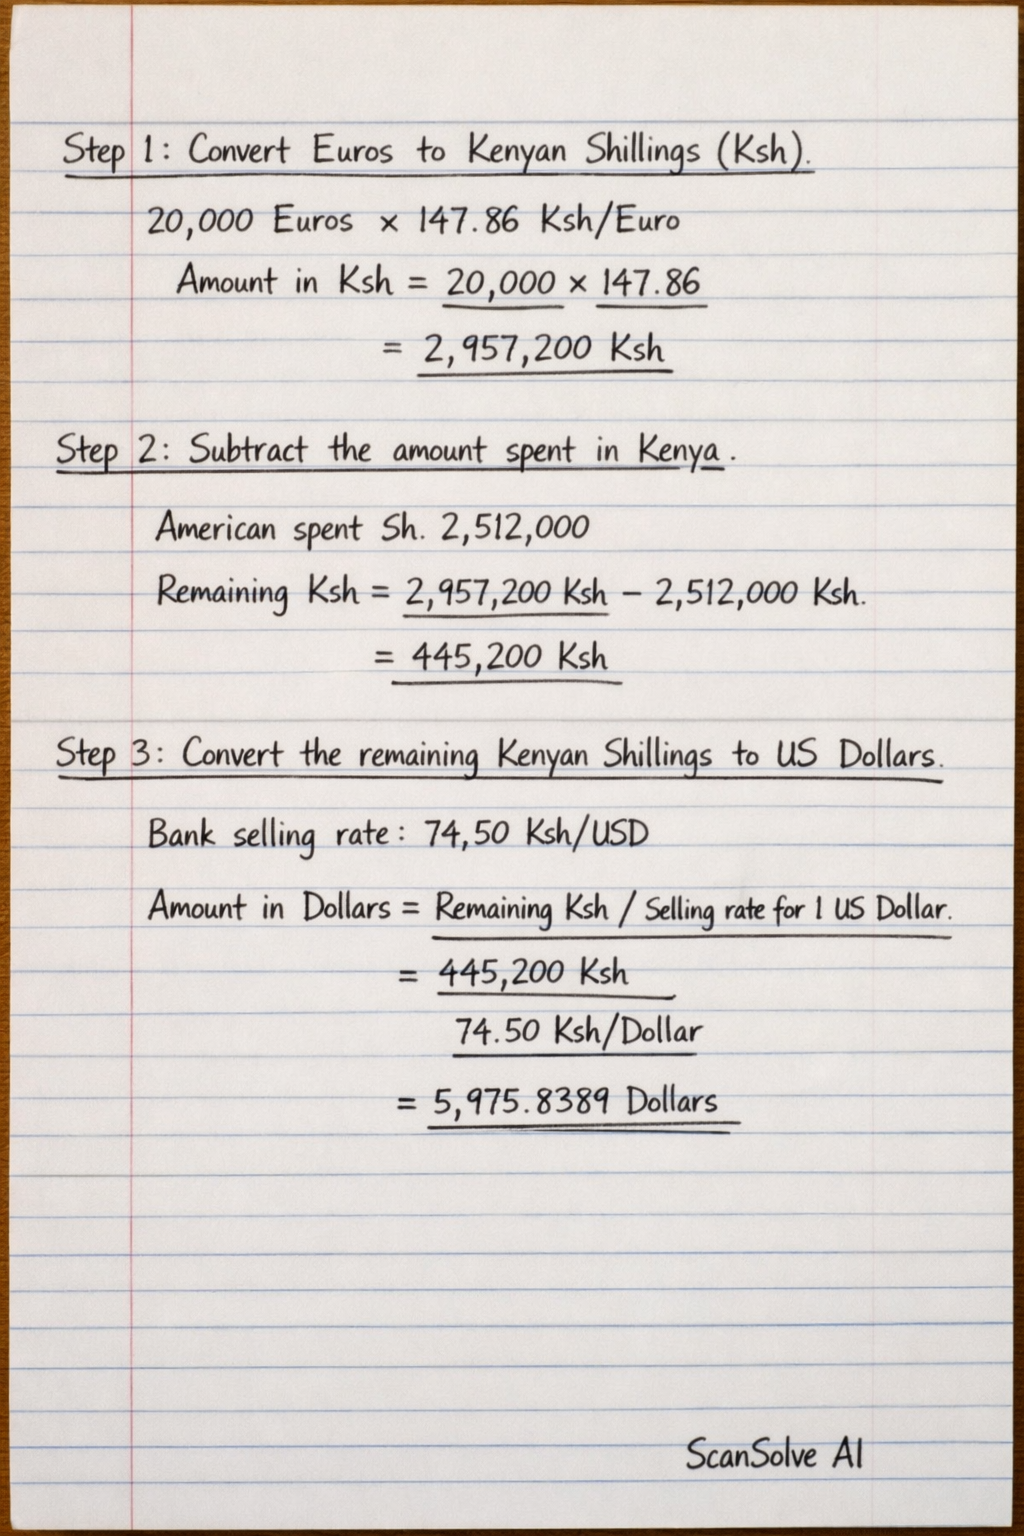 Step 1: Convert Euros to Kenyan Shillings (Ksh).
20,000 Euros × 147.86 Ksh/Euro
Amount in Ksh = 20,000 × 147.86
= 2,957,200 Ksh
Step 2: Subtract the amount spent in Kenya.
American spent Sh. 2,512,000
Remaining Ksh = 2,957,200 Ksh – 2,512,000 Ksh.
= 445,200 Ksh
Step 3: Convert the remaining Kenyan Shillings to US Dollars.
Bank selling rate: 74,50 Ksh/USD
Amount in Dollars = Remaining Ksh / Selling rate for 1 US Dollar.
= 445,200 Ksh
74.50 Ksh/Dollar
= 5,975.8389 Dollars
ScanSolve AI